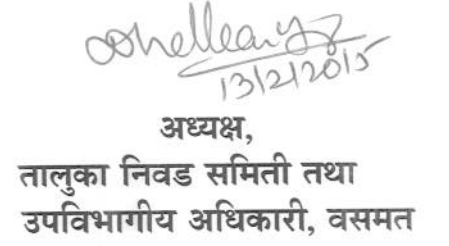 13/2/2015
अध्यक्ष,
तालुका निवड समिती तथा
उपविभागीय अधिकारी, वसमत